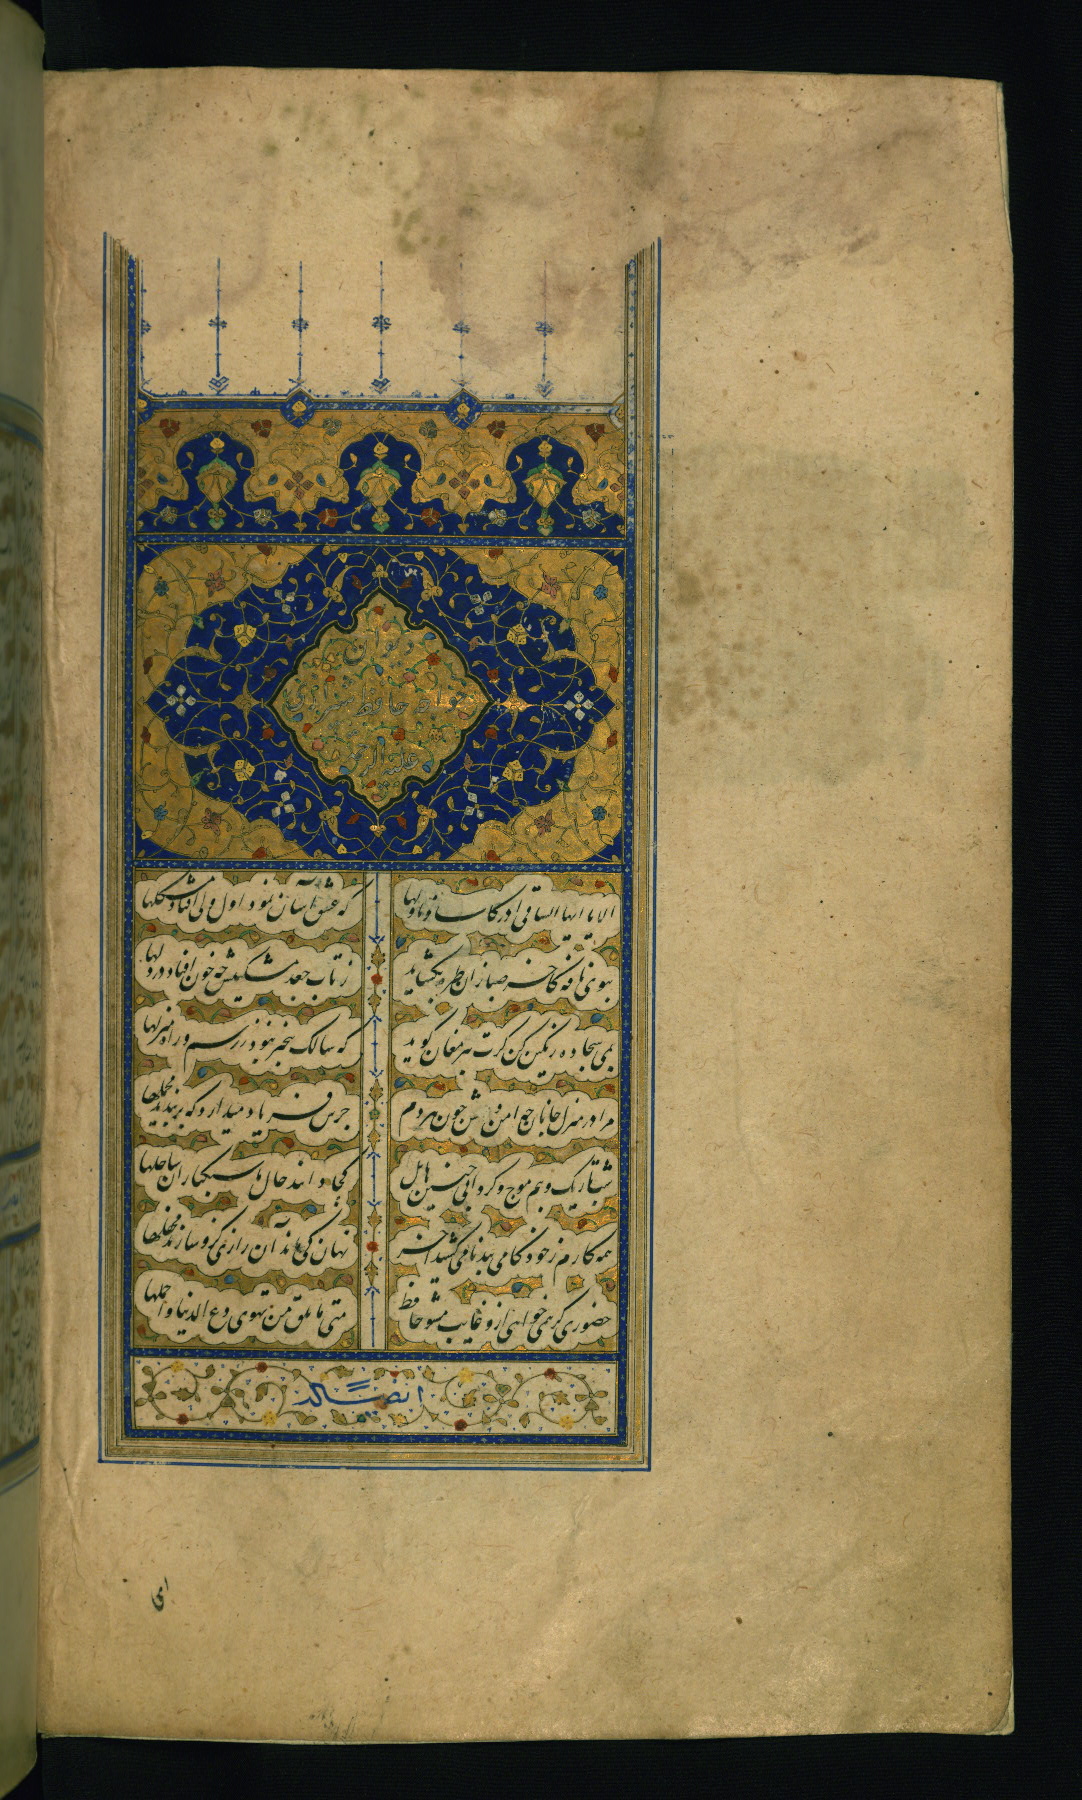 ديوان
حافظ شيرازى
عليه الرحمه
الا يا ايها الساقى ادر كاسا وناولها که عشق آسان نمود اول ولى افتاد مشکلها
ببوى نافه کاخر صبا زان طره بکشايد ز تاب جعد مشکينش چه خون افتاد در دلها
بمى سجاده رنکين کن کرت پير مغان کويد که سالک بيخبر نبود ز رسم و راه منزلها
مرا در منزل جانان چه امن و عيش چون هر دم جرس فرياد ميدارد که بربنديد محملها
شب تاريک و بيم موج و کردابى چنين هايل کجا دانند حال ما سبکباران ساحلها
همه کارم ز خود کامى ببدنامى کشيد آخر نهان کى ماند آن رازى کزو سازند محفلها
حضورى کر همى خواهى ازو غايب مشو حافظ متى ما تلق من تهوى دع الدنيا و اهملها
ايضا له
اى